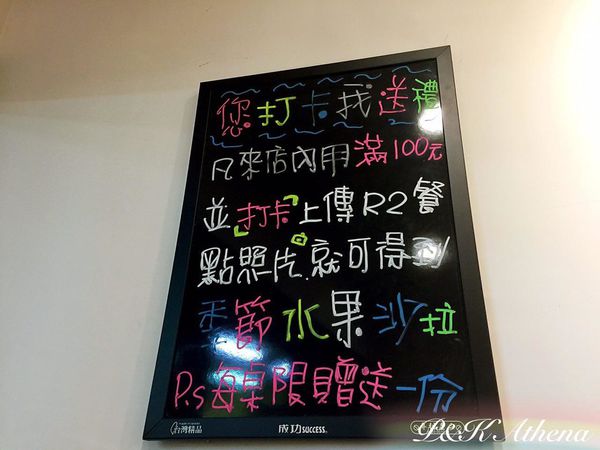 您打卡我送禮
凡來店內用滿100元
並「打卡」上傳R2餐
點照片.就可得到
季節水果沙拉
P.s每桌限贈送一份
台灣精品
成功SUCCESS®
P&K Athena